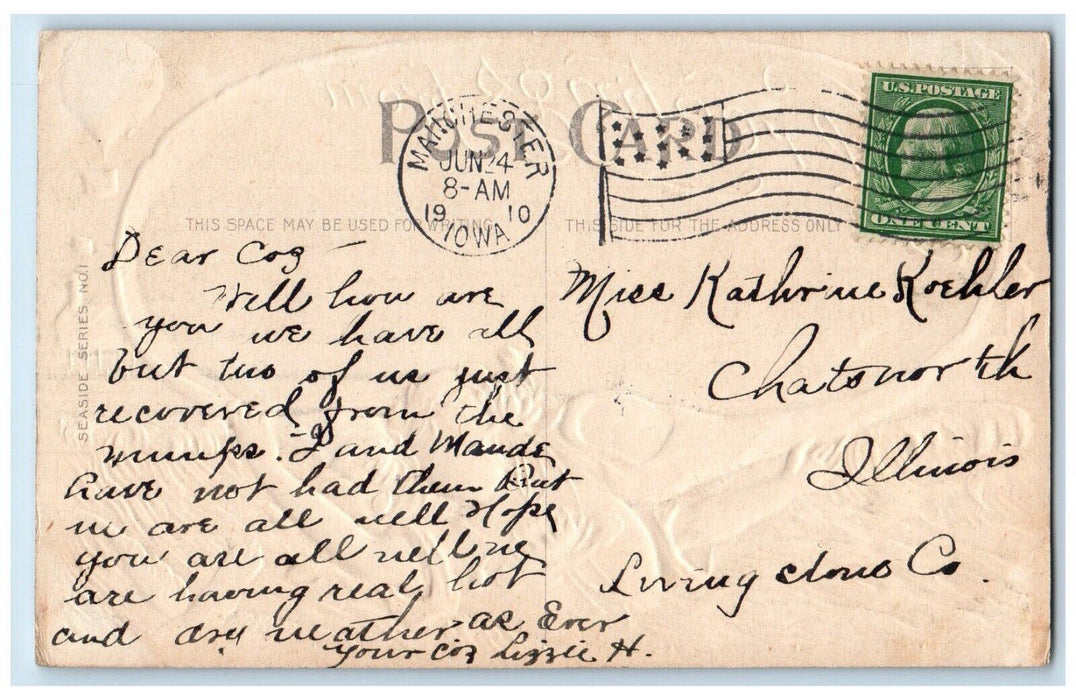 POST CARD
MANCHESTER
JUN 24
8-AM
19 10
IOWA
U.S. POSTAGE
ONE CENT
THIS SPACE MAY BE USED FOR WRITING
THIS SIDE FOR THE ADDRESS ONLY
SEASIDE SERIES NO.1
Dear Coz —
Well how are
you we have all
but two of us just
recovered from the
mumps. I and Maude
have not had them But
we are all well Hope
you are all well we
are having real hot
and dry weather as Ever
your coz Lizzie H.
Miss Kathrine Koehler
Chatsworth
Illinois
Livingstone Co.